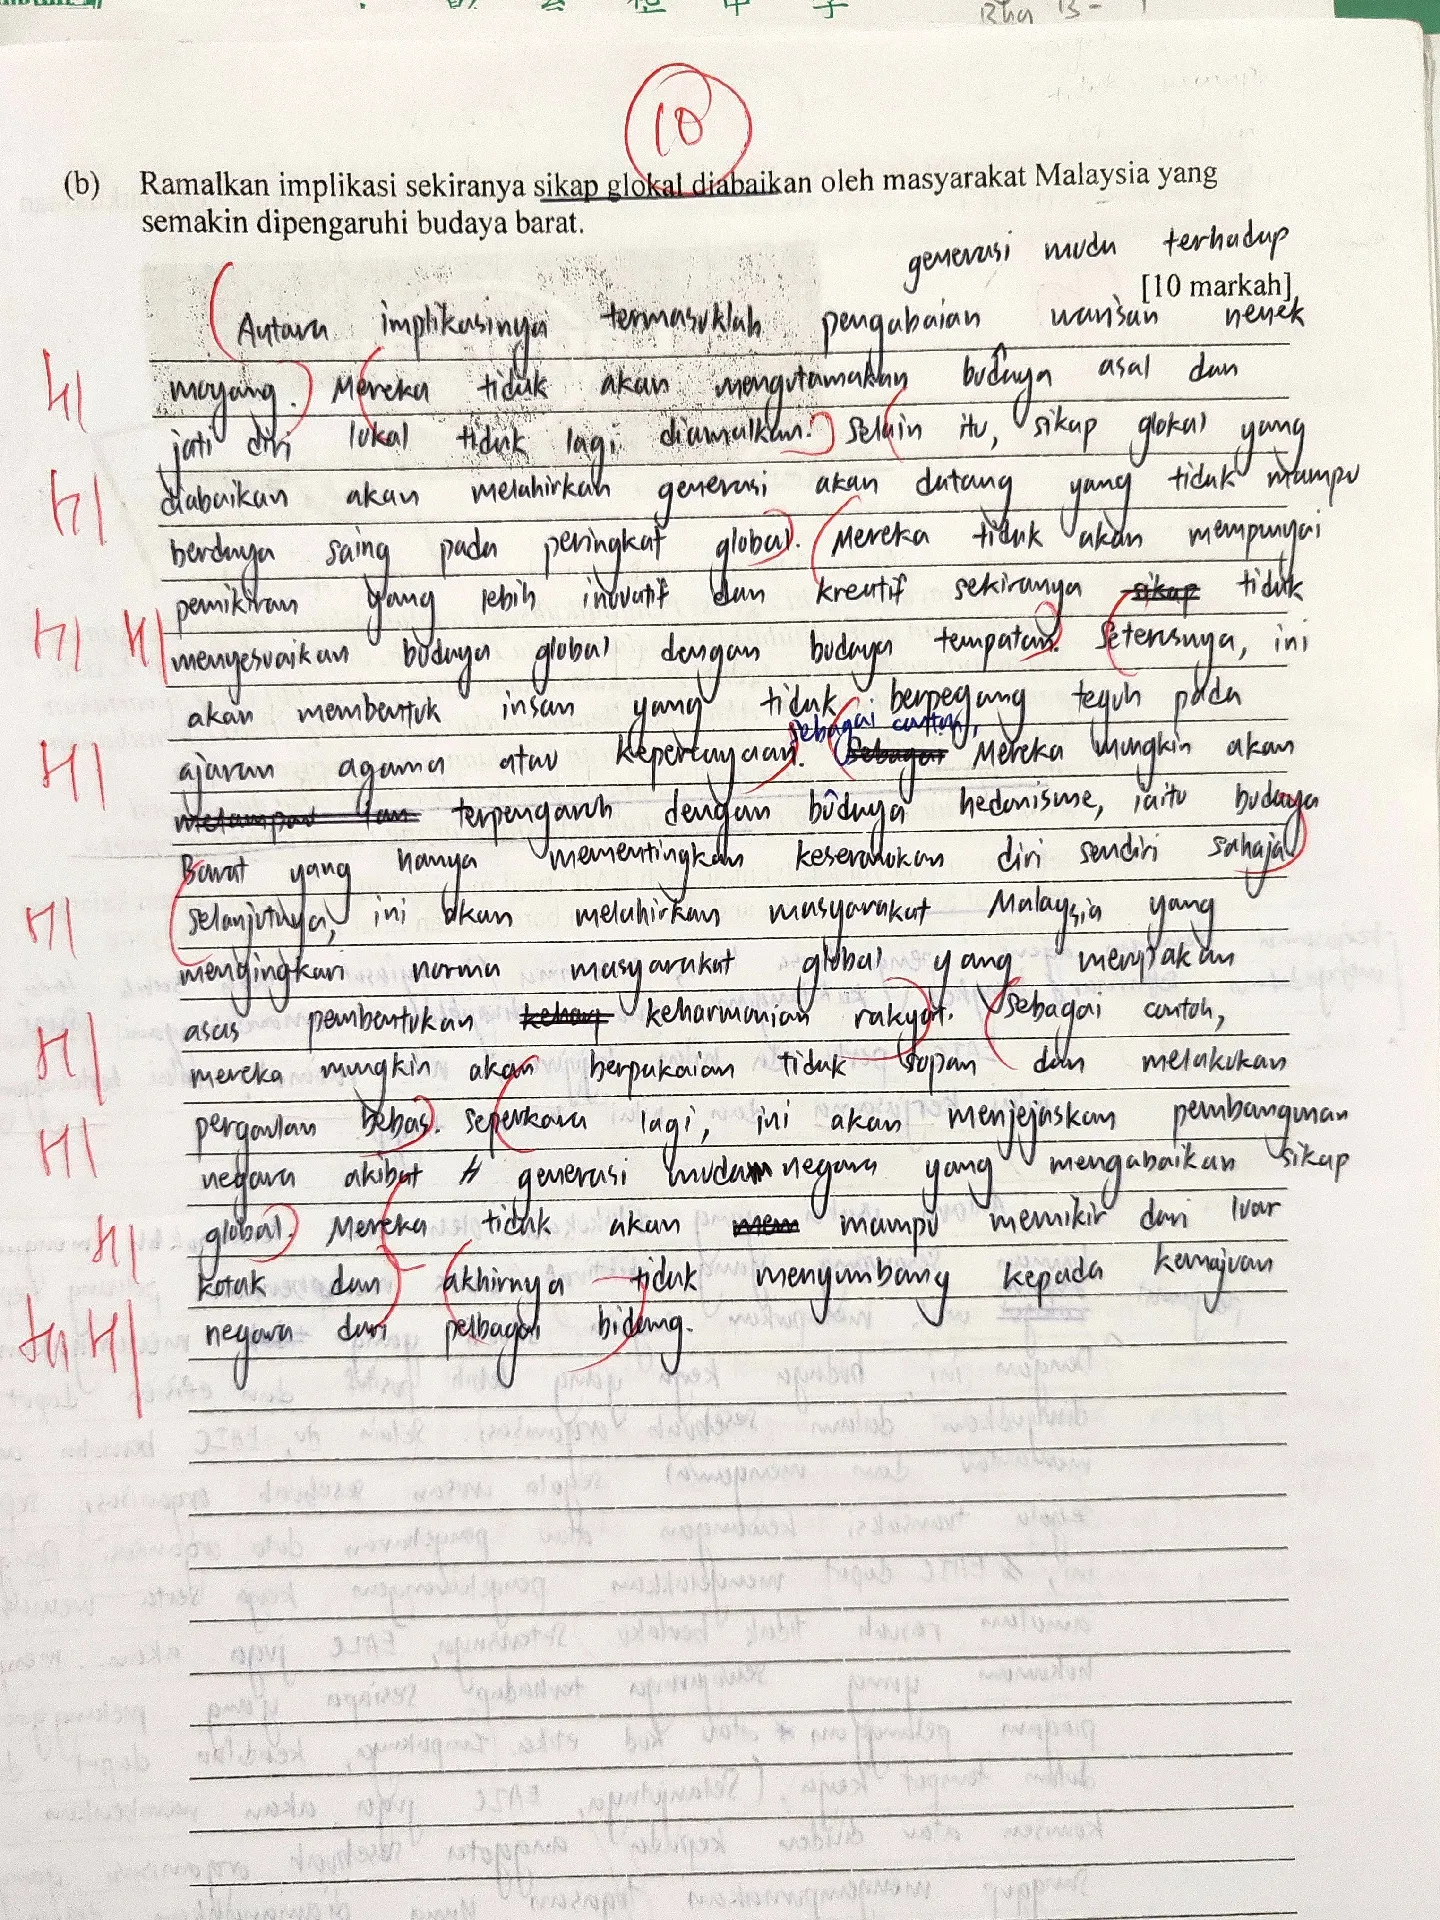 10
(b) Ramalkan implikasi sekiranya sikap glokal diabaikan oleh masyarakat Malaysia yang
semakin dipengaruhi budaya barat.
generasi muda terhadap
[10 markah]
Antara implikasinya termasuklah pengabaian warisan nenek
moyang. Mereka tidak akan mengutamakan budaya asal dan
jati diri lokal tidak lagi diamalkan. Selain itu, sikap glokal yang
diabaikan akan melahirkan generasi akan datang yang tidak mampu
berdaya saing pada peringkat global. Mereka tidak akan mempunyai
pemikiran yang lebih inovatif dan kreatif sekiranya sikap tidak
menyesuaikan budaya global dengan budaya tempatan. Seterusnya, ini
akan membentuk insan yang tidak berpegang teguh pada
ajaran agama atau kepercayaan. sebagai contoh, Sebagai Mereka mungkin akan
terpengaruh dengan budaya hedonisme, iaitu budaya
Barat yang hanya mementingkan keseronokan diri sendiri sahaja.
Selanjutnya, ini akan melahirkan masyarakat Malaysia yang
mengingkari norma masyarakat global yang menjadi akan
asas pembentukan keharmonian rakyat. Sebagai contoh,
mereka mungkin akan berpakaian tidak sopan dan melakukan
pergaulan bebas. Seperkara lagi, ini akan menjejaskan pembangunan
negara akibat generasi muda negara yang mengabaikan sikap
global. Mereka tidak akan mem mampu memikir dari luar
kotak dan akhirnya tidak menyumbang kepada kemajuan
negara dari pelbagai bidang.